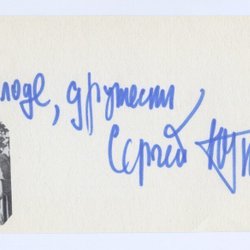 лоде, дружески
Сергей Ют